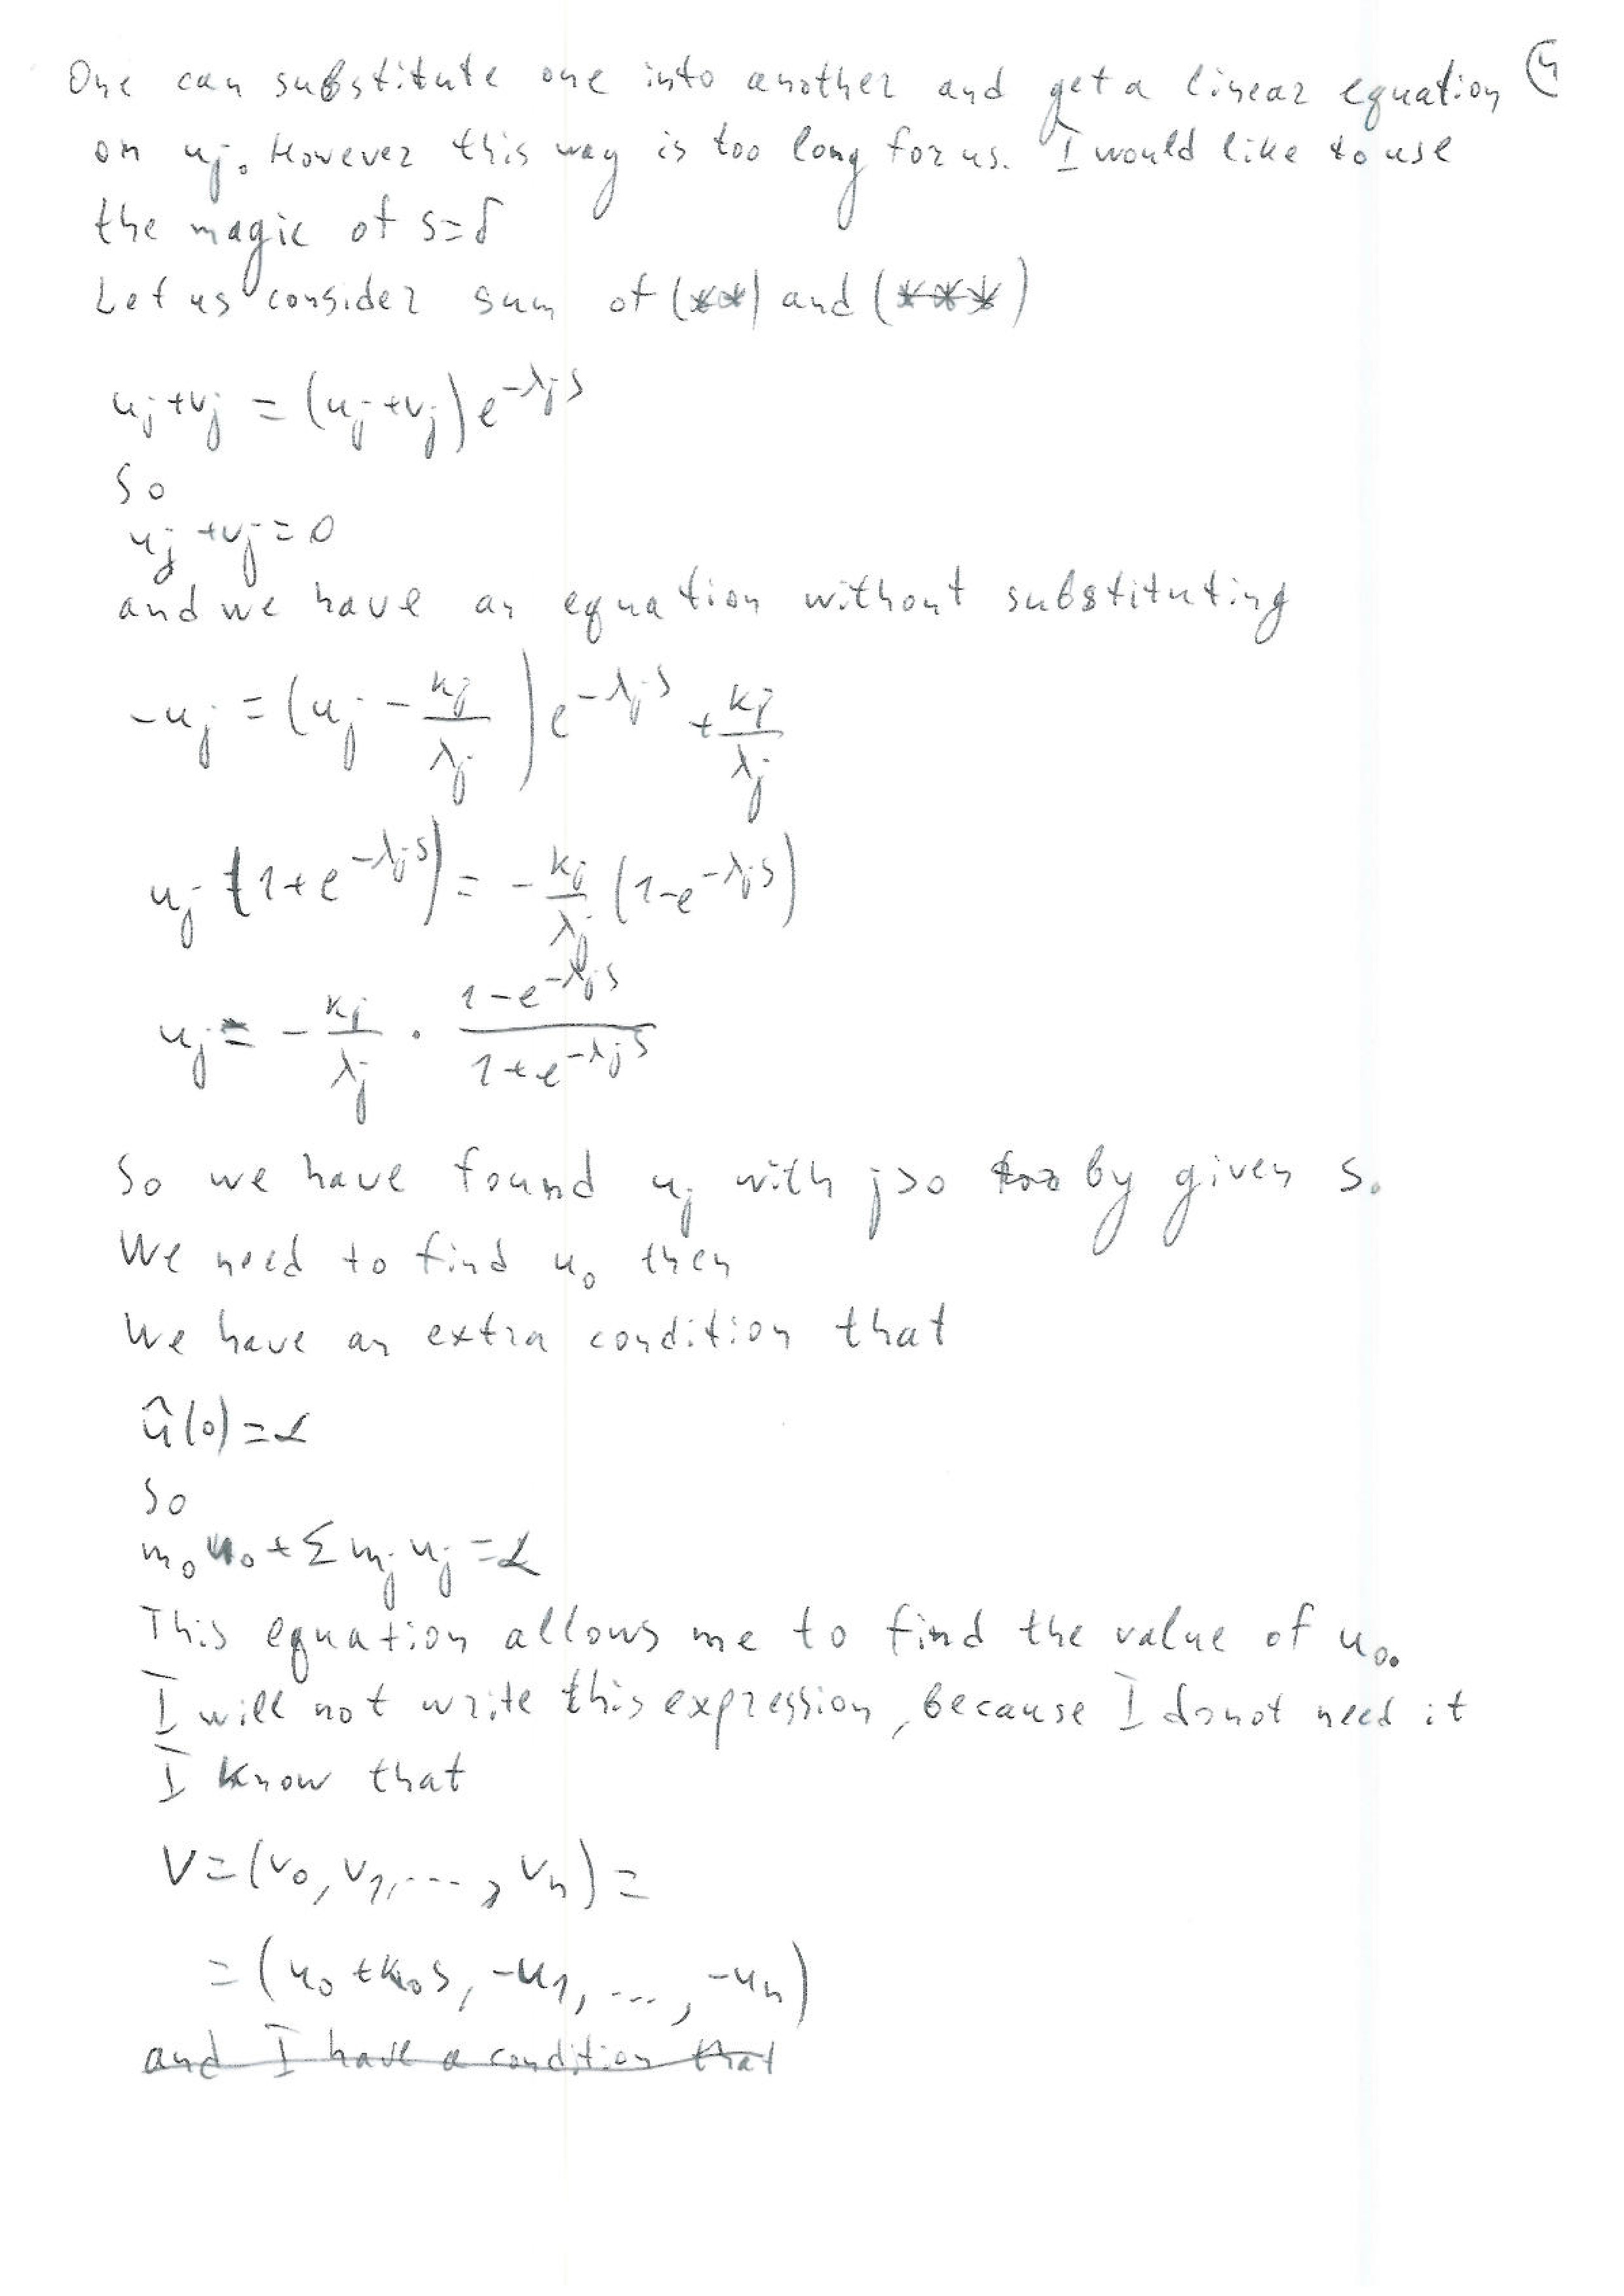 One can substitute one into another and get a linear equation (4
on uj. However this way is too long for us. I would like to use
the magic of s=δ
Let us consider sum of (**) and (***)
uj+vj = (uj+vj)e^{-λjs}
So
uj+vj=0
and we have an equation without substituting
-uj = (uj - kj/λj)e^{-λjs} + kj/λj
uj (1+e^{-λjs}) = -kj/λj (1-e^{-λjs})
uj = -kj/λj · (1-e^{-λjs})/(1+e^{-λjs})
So we have found uj with j>0 by given s.
We need to find u₀ then
We have an extra condition that
û(0)=α
So
m₀u₀+Σmjuj=α
This equation allows me to find the value of u₀.
I will not write this expression, because I do not need it
I know that
V=(v₀,v₁,...,vₙ)=
=(u₀+k₀s,-u₁,...,-uₙ)
and I have a condition that